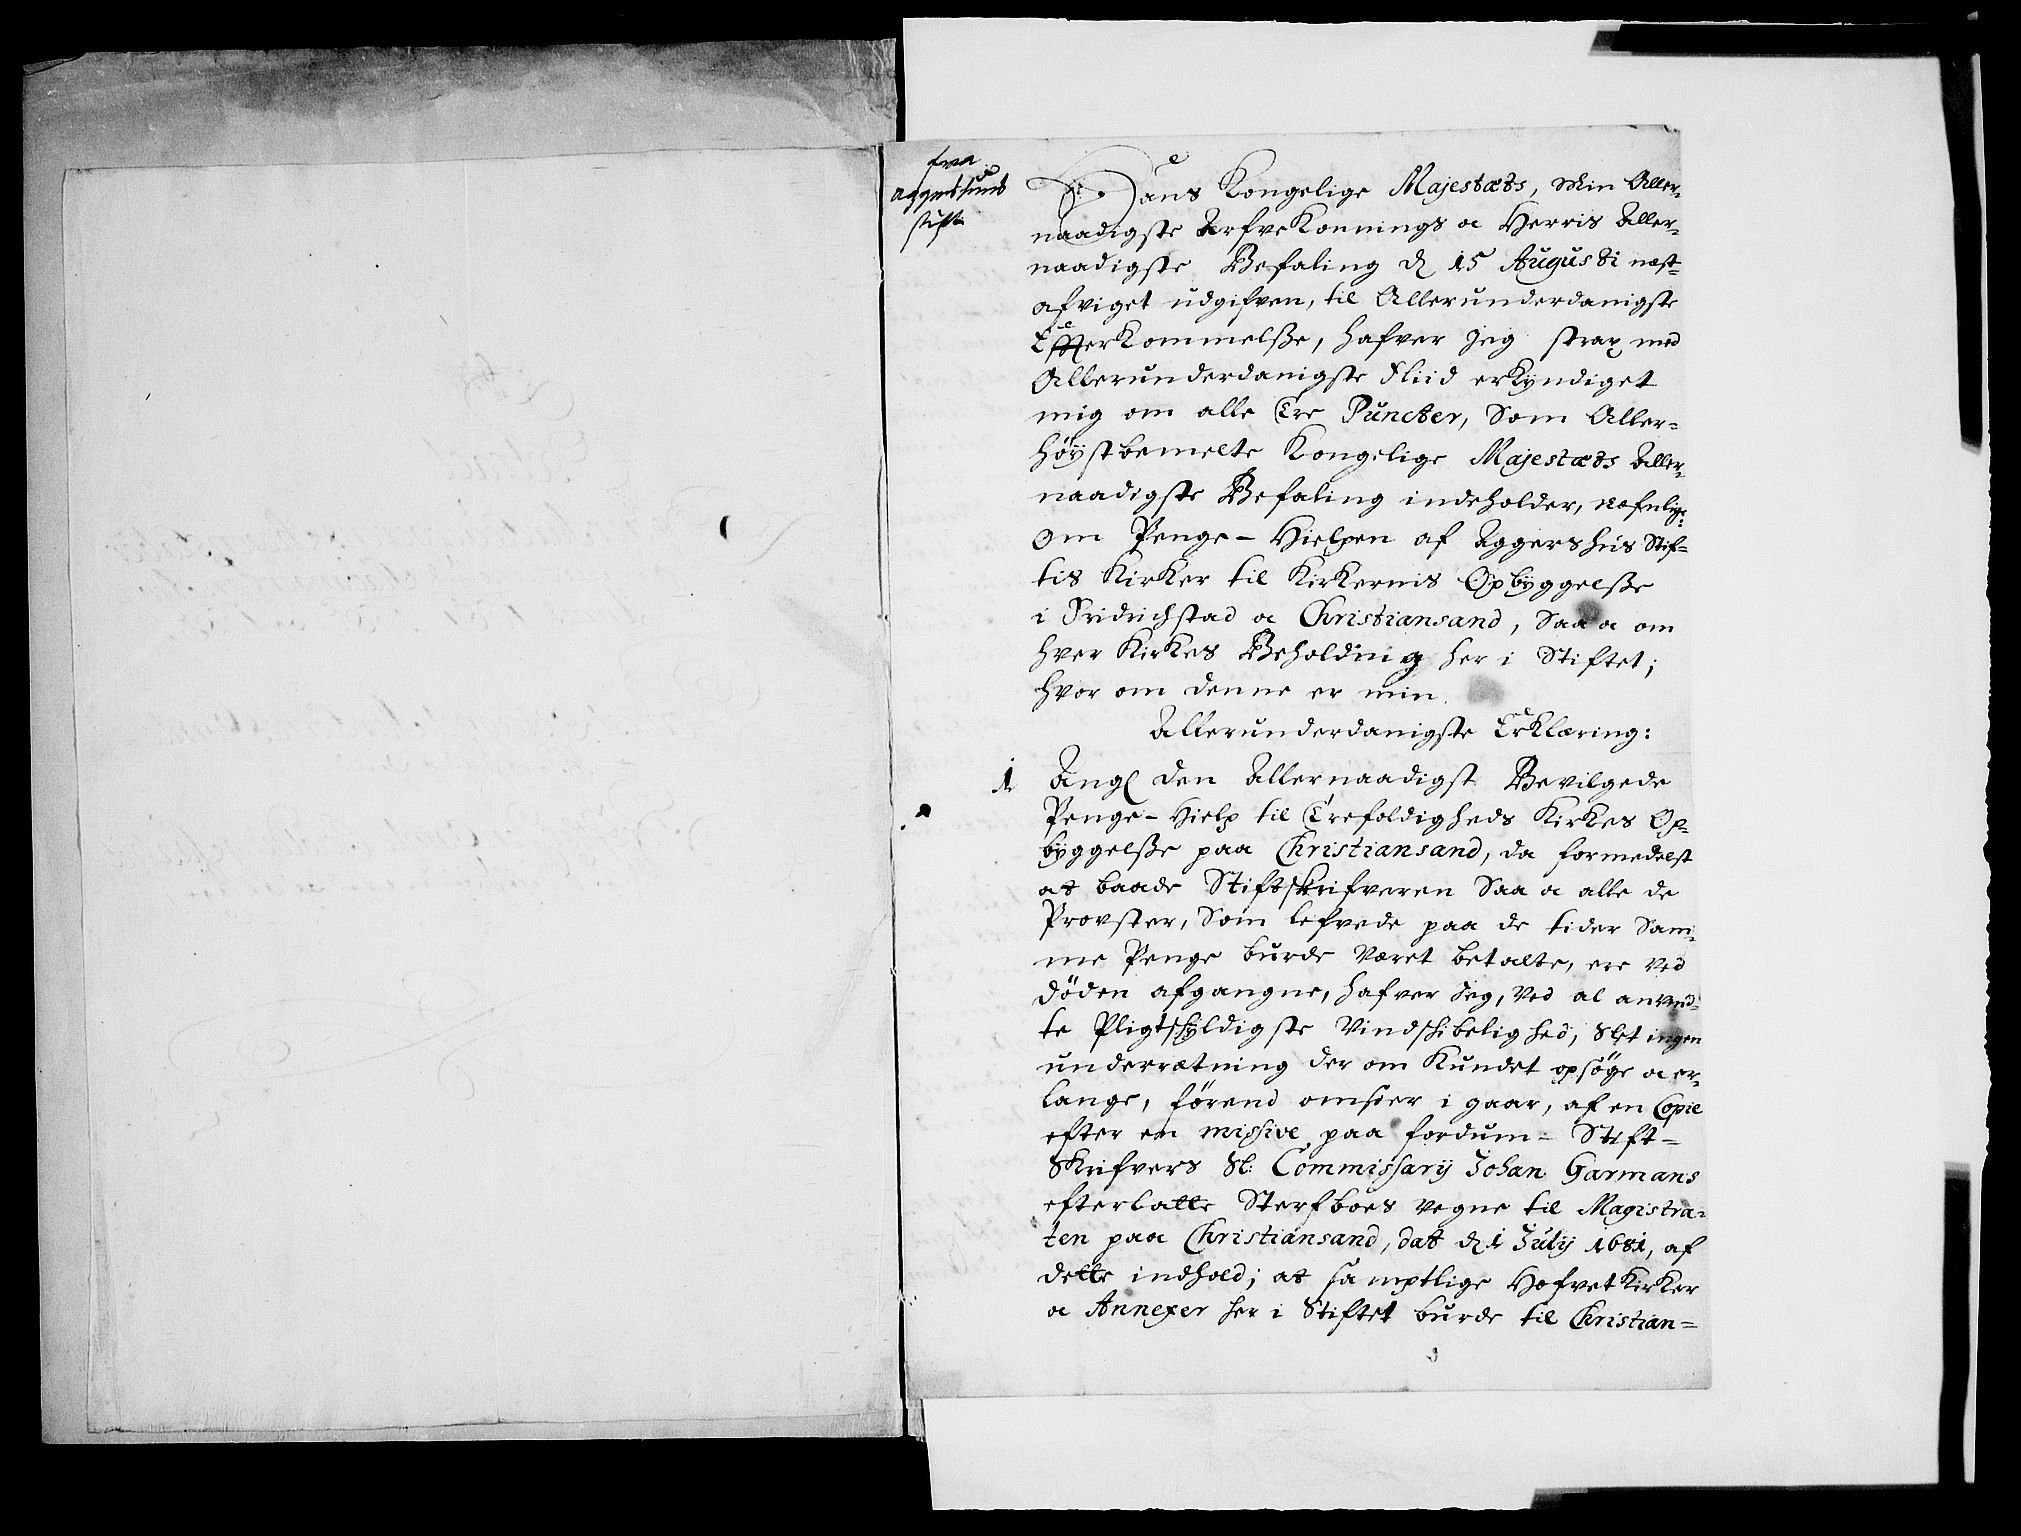 fra
Aggershuus
stift
Hans Kongelige Majestæts, Min Aller-
naadigste ArfveKonnings oc Herris Aller-
naadigste Befaling d 15 Augusti næst-
afviget udgifven, til Allerunderdanigste
EfterKommelsse, hafver Jeg strax med
Allerunderdanigste Fliid erkyndiget
mig om alle Tre Puncter, Som Aller-
høystbemelte Kongelige Majestæts Aller-
naadigste Befaling indeholder, næfnlig:
Om Penge-Hielpen af Aggershus Stif-
tis Kirker til Kirkernis Opbyggelsse
i Fridrichstad oc Christiansand, Saa oc om
hver Kirkes Beholdning her i Stiftet;
hvor om denne er min
Allerunderdanigste Erklæring:
1 Angl den Allernaadigst Bevilgede
Penge-Hielp til Trefoldigheds Kirkes Op-
byggelsse paa Christiansand, da formedelst
at baade Stiftskrifveren Saa oc alle de
Provster, Som lefvede paa de tider Sam-
me Penge burde Været betalte, ere Ved
døden afgangne, hafver Jeg, Ved al anvend-
te Pligtskyldigste Vindschibelighed, Slet ingen
underrætning der om Kundet opsøge oc er-
lange, førend omsier i gaar, af en Copie
efter en missive paa fordum- Stift-
Skrifvers Sl: Commissarij Johan Garmans
efterlatte Sterfboes Vegne til Magistra-
ten paa Christiansand, dat d 1 Julij 1681, af
dette indhold; at samptlige HofvetKirker
oc Annexer her i Stiftet burde til Christian-